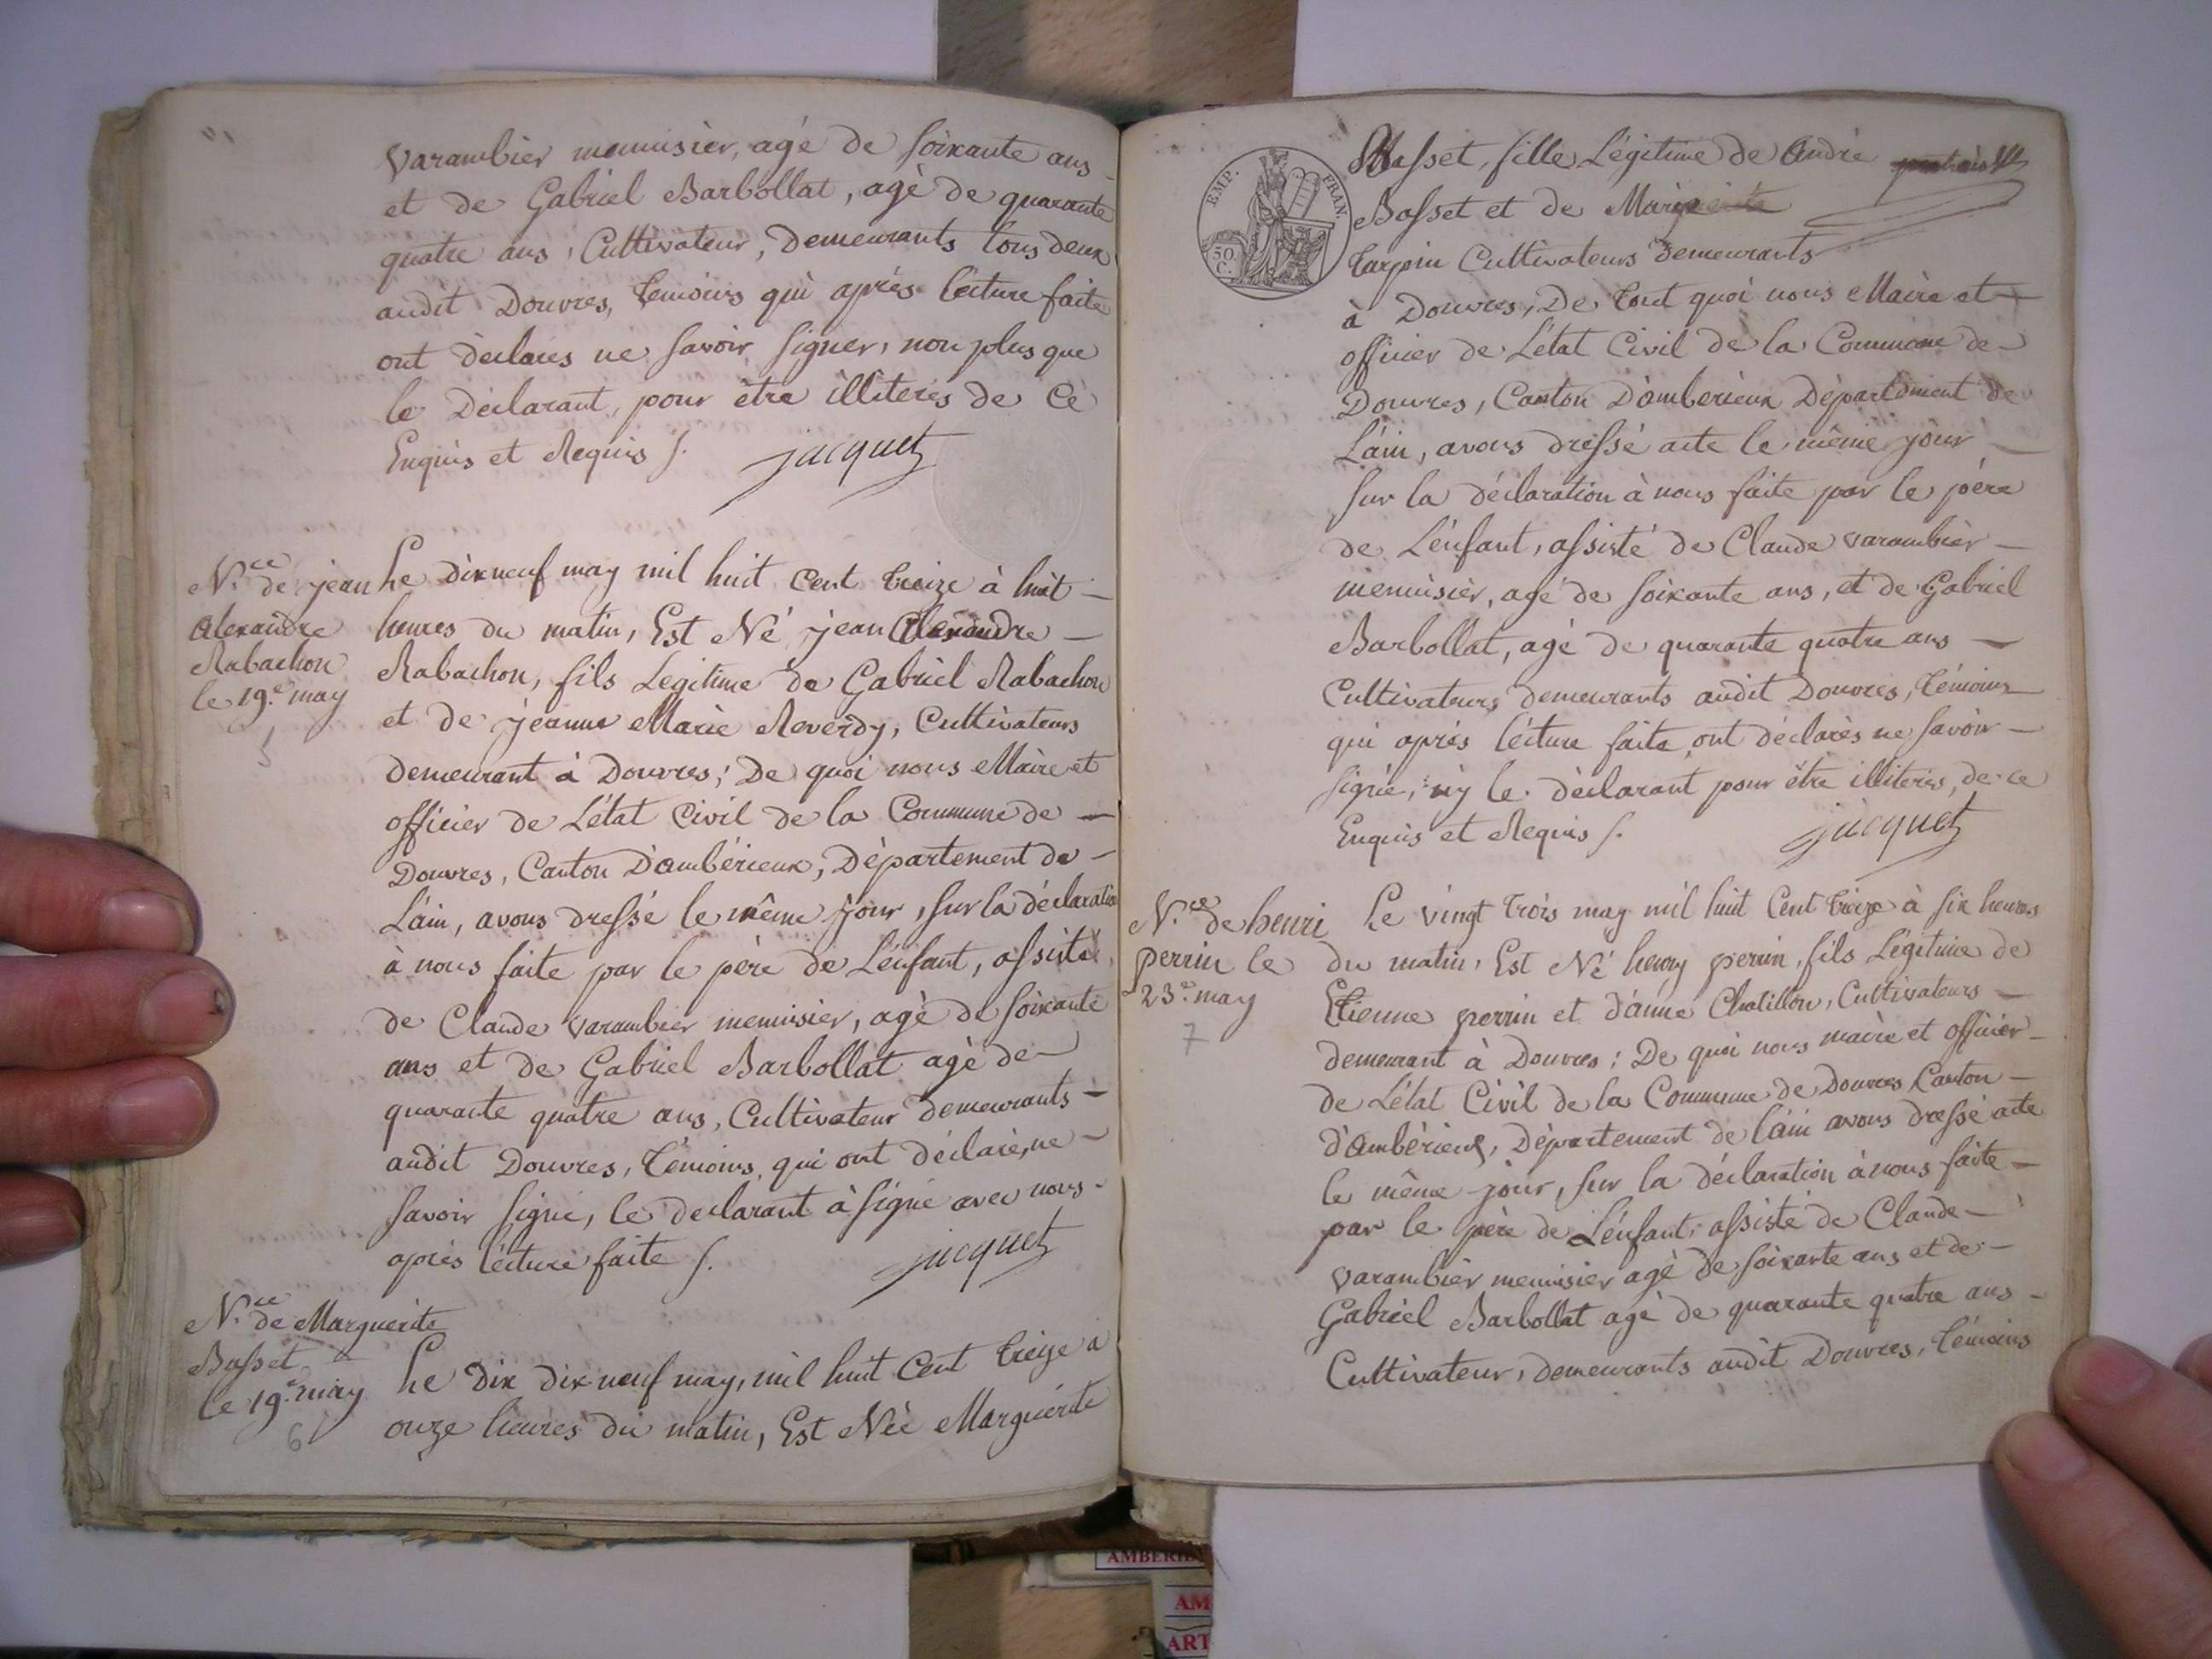 varambier menuisier, agé de soixante ans
et de Gabriel Barbollat, agè de quarante
quatre ans, Cultivateur, demeurants tous deux
audit Douvres, temoins qui après lecture faite
ont dèclares ne savoir signer, non plus que
le Dèclarant, pour ètre illiterés de Cè
Enquis et Requis /.
jacquet
N.ce de jean
Alexandre
Rabachon
le 19.e may
5
Le dix neuf may mil huit cent treize à huit
heures du matin, Est Né jean Alexandre
Rabachon, fils Legitime de Gabriel Rabachon
et de jeanne Marie Reverdy, Cultivateurs
demeurant à Douvres; De quoi nous Maire et
officier de L'état Civil de la Commune de
Douvres, Canton D'ambérieux, Département de
L'ain, avons dressé le même jour, sur la déclaration
à nous faite par le père de L'enfant, assisté
de Claude varambier menuisier, agè de soixante
ans et de Gabriel Barbollat agè de
quarante quatre ans, Cultivateur demeurants
audit Douvres, témoins, qui ont déclaré, ne
savoir signé, le declarant à signé avec nous
après lecture faite /.
jacquet
N.ce de Marguerite
Basset
le 19.e may
6
Le dix dix neuf may, mil huit Cent treize à
onze heures du matin, Est Née Marguerite
EMP. FRAN.
50 C.
Basset, fille Légitime de André
Basset et de Marie
tarpin Cultivateurs demeurants
à Douvres, De tout quoi nous Maire et
officier de L'état Civil de la Commune de
Douvres, Canton D'amberieux Département de
L'ain, avons dressé acte le même jour
sur la déclaration à nous faite par le père
de L'enfant, assisté de Claude varambier
menuisier, agé de soixante ans, et de Gabriel
Barbollat, agé de quarante quatre ans
Cultivateurs demeurants audit Douvres, témoins
qui après lecture faite ont déclarés ne savoir
signé, ny le déclarant pour être illiterés, de ce
Enquis et Requis /.
jacquet
N.ce de henri
perrin le
23.e may
7
Le vingt trois may mil huit Cent treize à six heures
du matin, Est Né henry perrin, fils Légitime de
Etienne perrin et d'anne Chatillon, Cultivateurs
demeurant à Douvres; De quoi nous maire et officier
de L'état Civil de la Commune de Douvres Canton
d'ambérieux, Département de l'ain avons dressé acte
le même jour, sur la déclaration à nous faite
par le père de L'enfant, assisté de Claude
varambièr menuisier agè de soixante ans et de
Gabriel Barbollat agè de quarante quatre ans
Cultivateur, demeurants audit Douvres, témoins
AM
ART